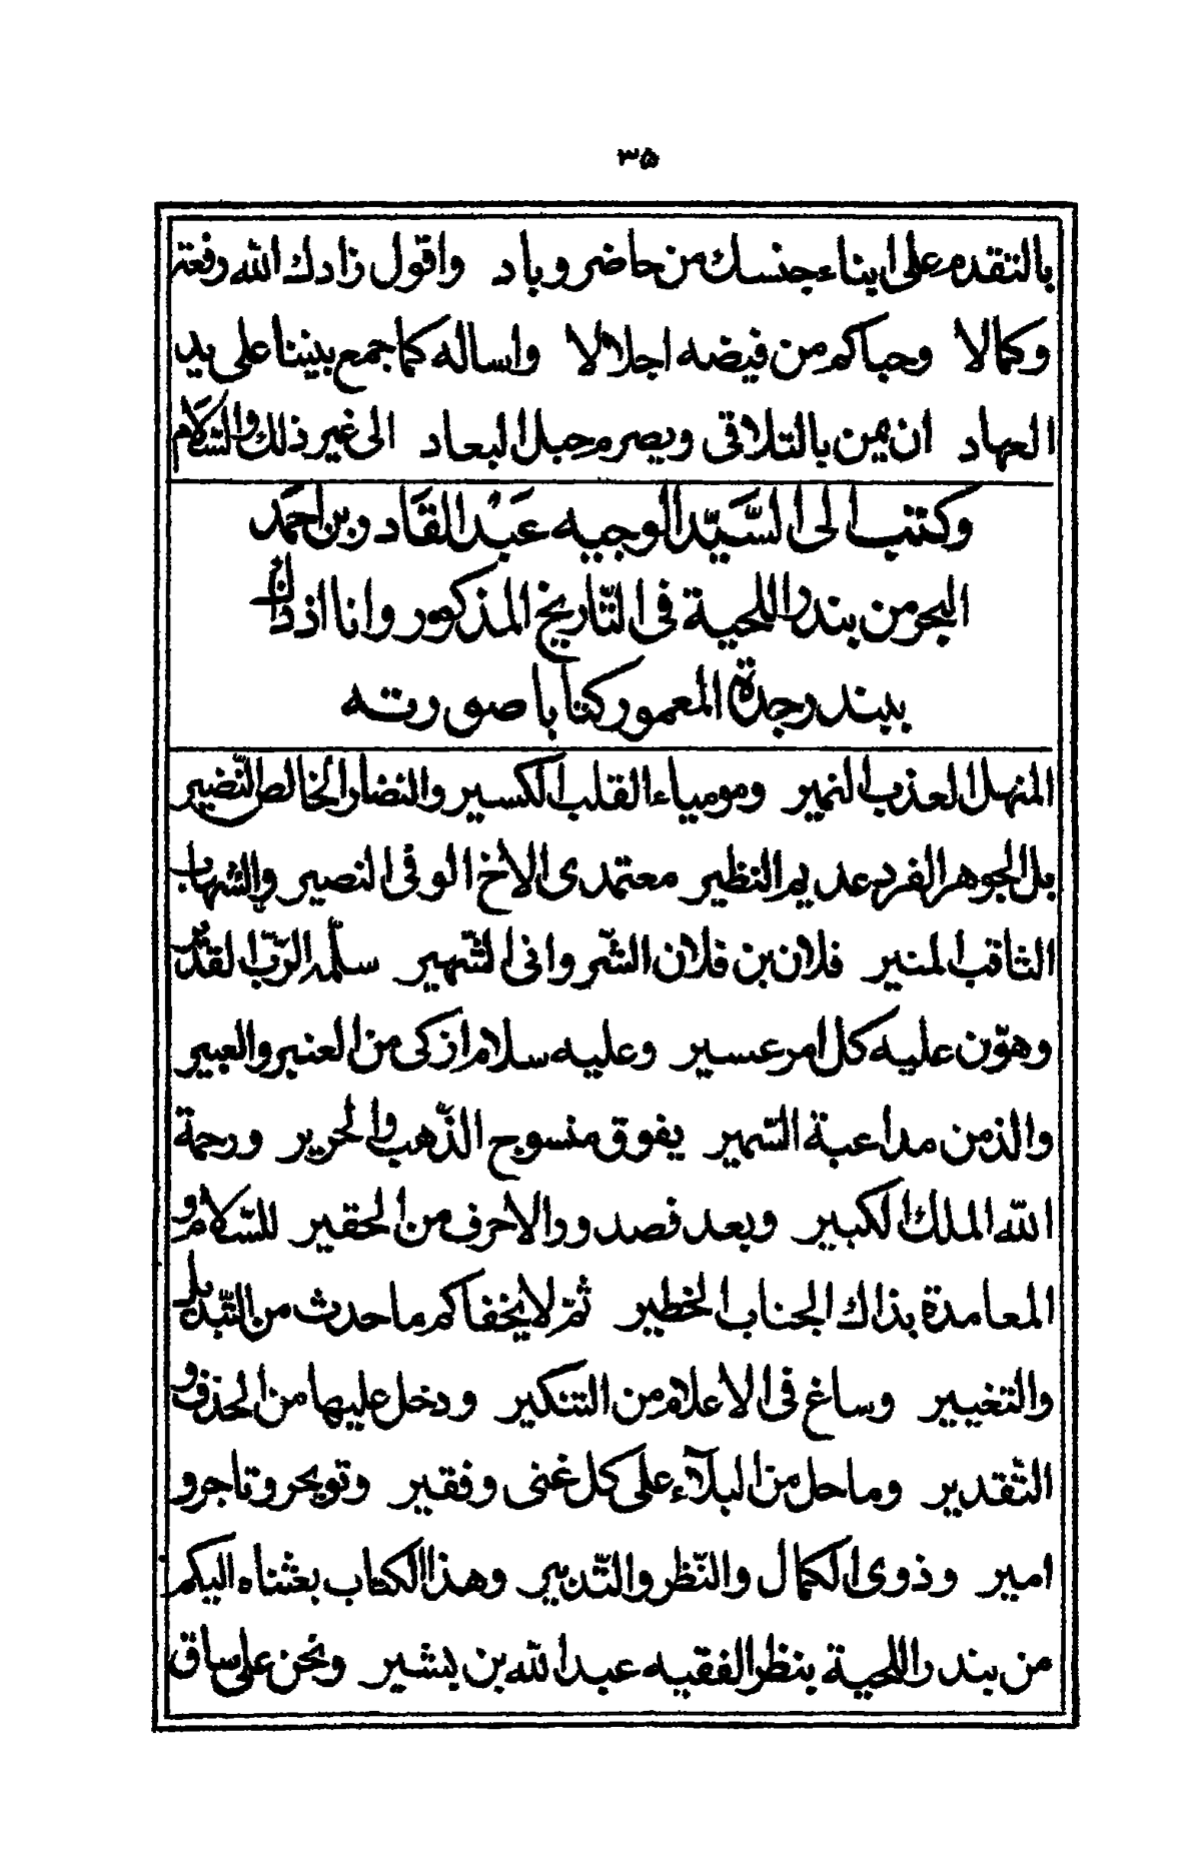 ٣٥
بالتقدم على ابناء جنسك من حاضر وباد واقول زادك الله رفعة
وكمالا وحباكم من فيضه اجلالا واساله كما جمع بيننا على يد
العهاد ان يمن بالتلاقى ويصرم حبل البعاد الى غير ذلك والسّلام
وكتب الى السَّيّد الوجيه عَبْد القَادر بن احمَد
البحر من بندر اللحية فى التّاريخ المذكور وانا اذ ذاك
ببندر جدة المعمور كتابا صورته
المنهل العذب النمير ومومياء القلب الكسير والنضار الخالص النّضير
بل الجوهر الفرد عديم النظير معتمدى الاخ الوفى النصير والشهاب
الثاقب المنير فلان بن فلان الشّروانى الشّهير سلّمه الرّبّ القدير
وهوّن عليه كل امر عسير وعليه سلام ازكى من العنبر والعبير
والذ من مداعبة السّمير يفوق منسوج الذّهب والحرير ورحمة
الله الملك الكبير وبعد فصدور الاحرف من الحقير للسّلام و
المعاهدة بذاك الجناب الخطير ثمّ لا يخفاكم ما حدث من التّبديل
والتغيير وساغ فى الاعلام من التنكير ودخل عليها من الحذف و
التّقدير وما حل من البلآء على كل غنى وفقير وتويجر وتاجر و
امير وذوى الكمال والنّظر والتّدبير وهذا الكتاب بعثناه اليكم
من بندر اللحية بنظر الفقيه عبد الله بن بشير ونحن على ساق